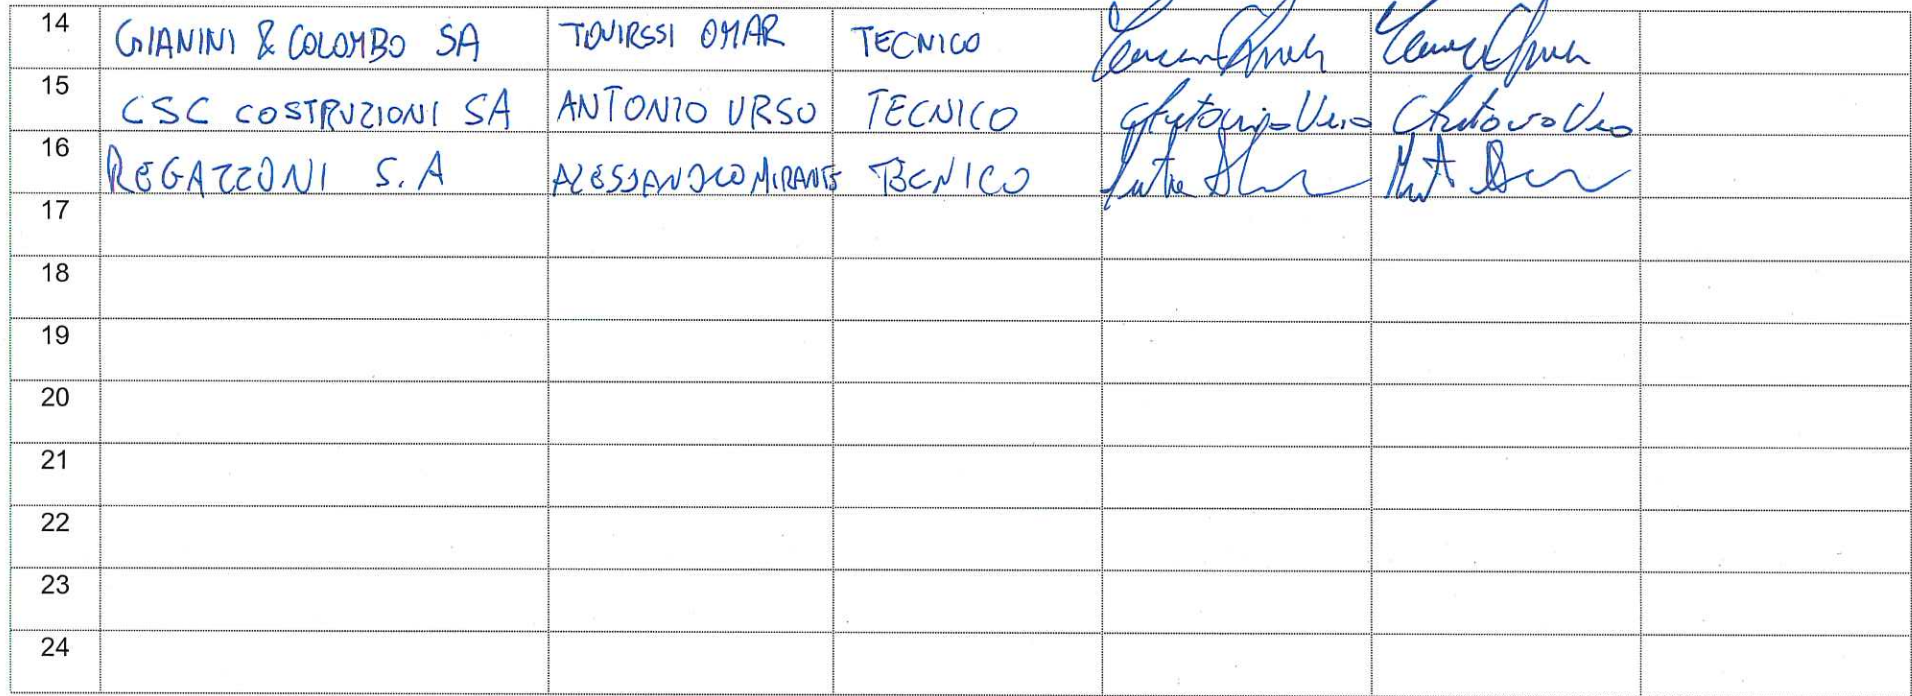 14 GIANINI & COLOMBO SA OMAR TECNICO
15 CSC COSTRUZIONI SA ANTONIO URSO TECNICO
16 REGAZZONI S.A ALESSANDRO MIRANTE TECNICO
17
18
19
20
21
22
23
24